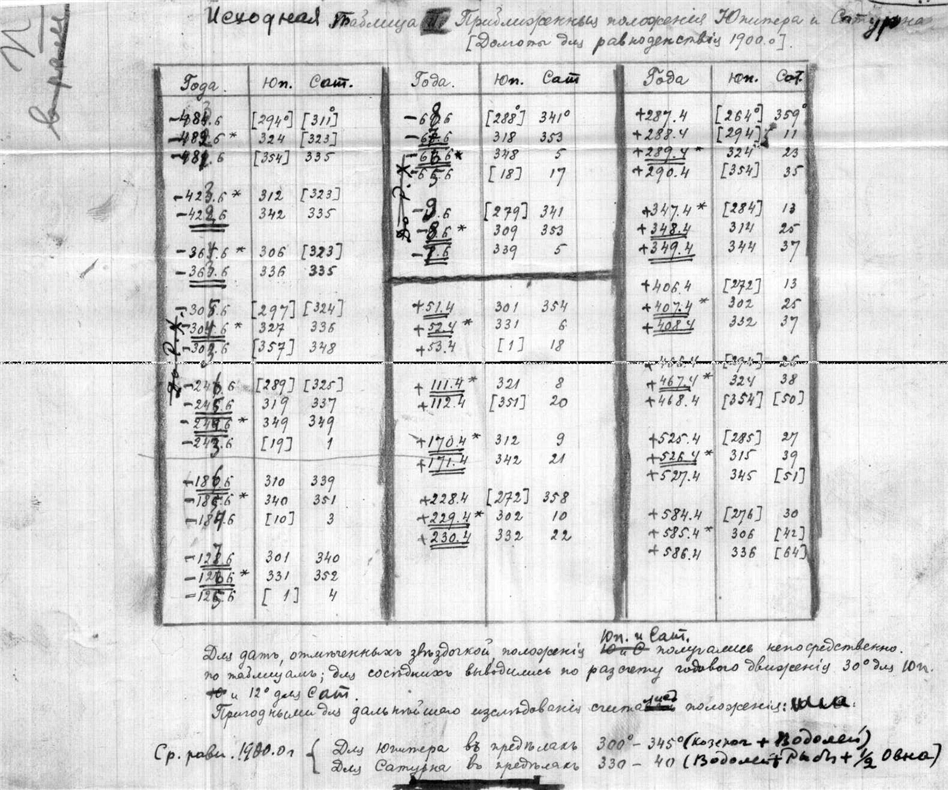 Исходная Таблица III. Приближенныя положенія Юпитера и Сатурна
[Долготы для равноденствія 1900.0].
Года. Юп. Сат.
[294°] [311°]
324 [323]
[354] 335
-423.6 * 312 [323]
-422.6 342 335
* 306 [323]
336 335
[297] [324]
-304.6 * 327 336
[357] 348
-246.6 [289] [325]
-245.6 319 337
-244.6 * 349 349
-243.6 [19] 1
-186.6 310 339
-185.6 * 340 351
-184.6 [10] 3
-127.6 301 340
-126.6 * 331 352
-125.6 [1] 4
до Р. Х.
Года. Юп. Сат
-68.6 [288°] 341°
-67.6 318 353
-66.6 * 348 5
-65.6 [18] 17
-9.6 [279] 341
-8.6 * 309 353
-7.6 339 5
до Р. Х.
+51.4 301 354
+52.4 * 331 6
+53.4 [1] 18
+111.4 * 321 8
+112.4 [351] 20
+170.4 * 312 9
+171.4 342 21
+228.4 [272] 358
+229.4 * 302 10
+230.4 332 22
Года Юп. Сат.
+287.4 [264°] 359°
+288.4 [294] 11
+289.4 * 324 23
+290.4 [354] 35
+347.4 * [284] 13
+348.4 314 25
+349.4 344 37
+406.4 [272] 13
+407.4 * 302 25
+408.4 332 37
+466.4 [294] 26
+467.4 * 324 38
+468.4 [354] [50]
+525.4 [285] 27
+526.4 * 315 39
+527.4 345 [51]
+584.4 [276] 30
+585.4 * 306 [42]
+586.4 336 [64]
Юп. и Сат.
Для датъ, отмѣченныхъ звѣздочкой положенія получались непосредственно.
по таблицамъ; для сосѣднихъ выводились по разсчету годового движенія 30° для Юп.
и 12° для Сат.
Пригодными для дальнѣйшаго изслѣдованія положенія:
Ср. равн. 1900.0 г { Для Юпитера въ предѣлахъ 300° - 345° (Козерог + Водолей)
Для Сатурна въ предѣлахъ 330 - 40 (Водолей + Рыбы + 1/2 Овна)